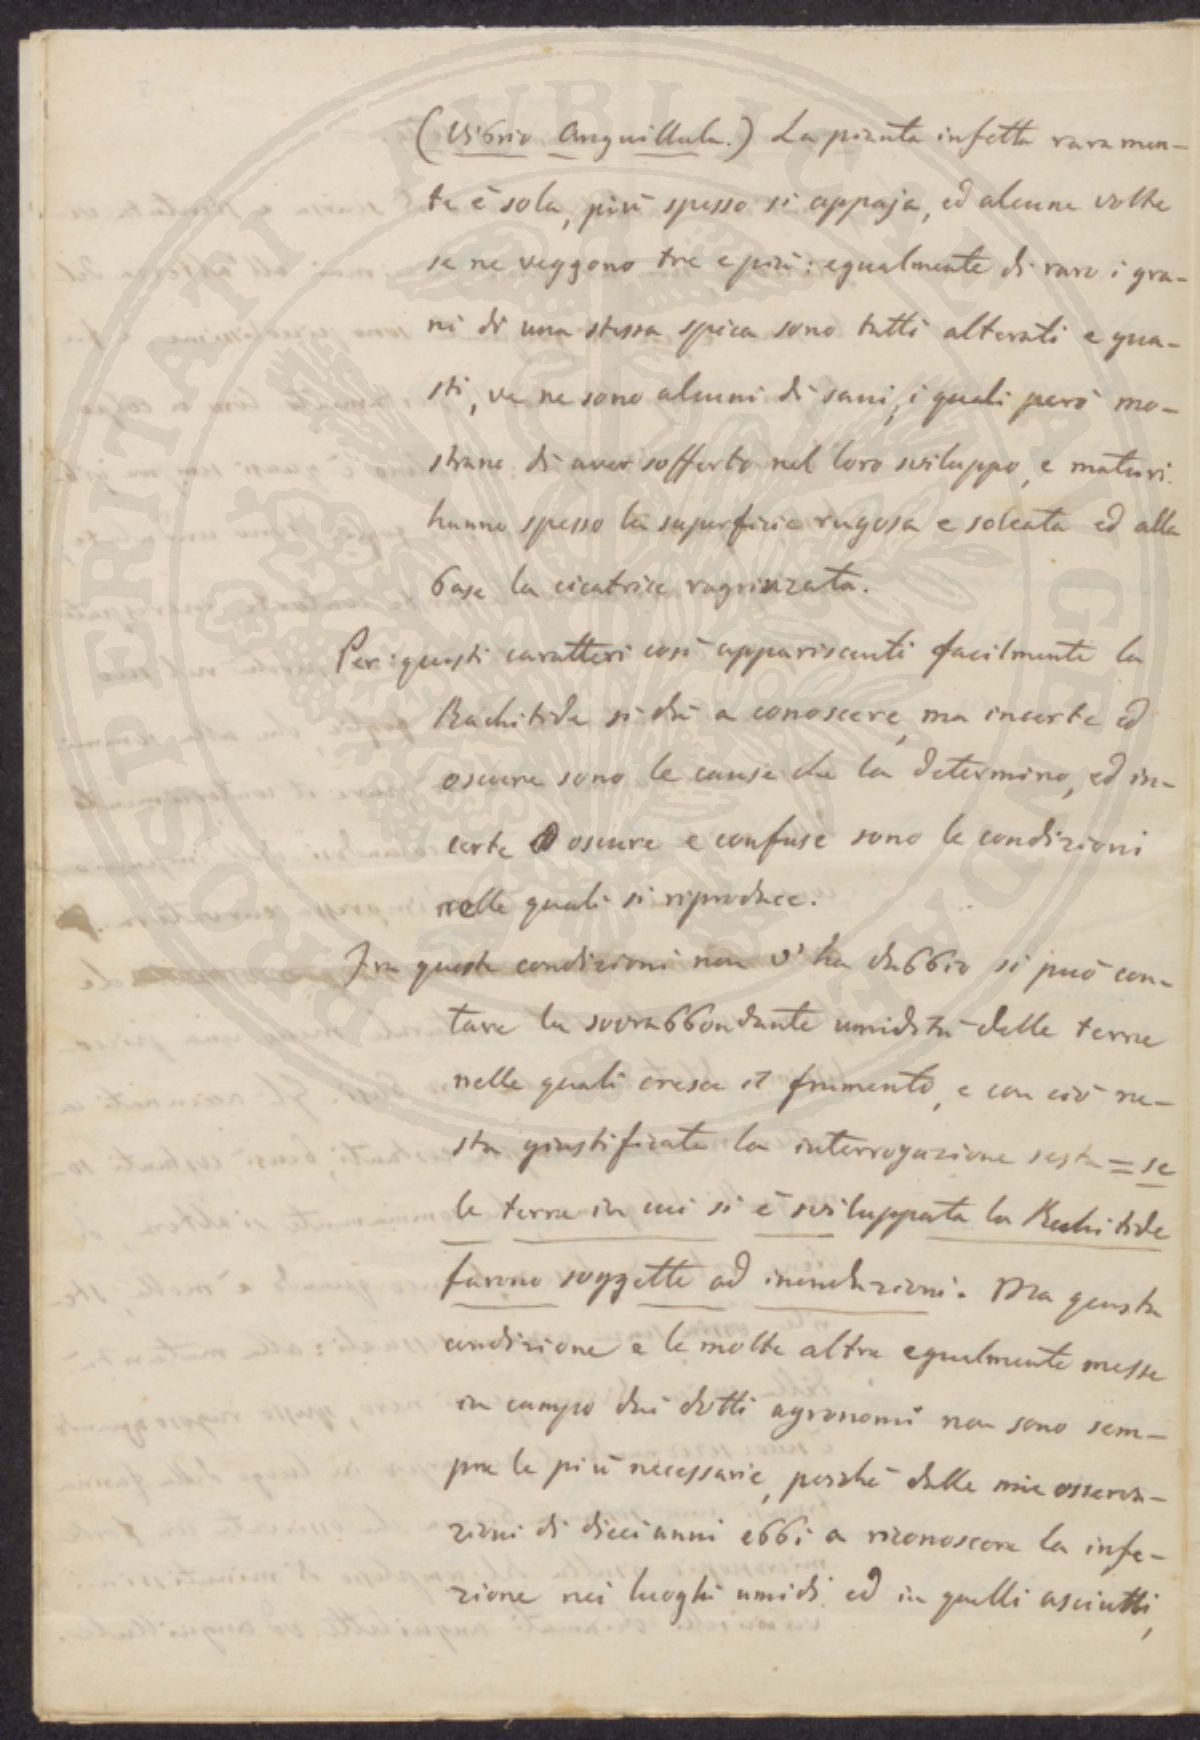 (Vibrio Anguillula.) La pianta infetta raramen-
te è sola, più spesso si appaja, ed alcune volte
se ne veggono tre e più: egualmente di raro i gra-
ni di una stessa spica sono tutti alterati e gua-
sti, ve ne sono alcuni di sani, i quali però mo-
strano di aver sofferto nel loro sviluppo, e maturi
hanno spesso la superficie rugosa e solcata ed alla
base la cicatrice ragrinzata.
Per questi caratteri così appariscenti facilmente la
Rachitide si dà a conoscere, ma incerte ed
oscure sono le cause che la determino, ed in-
certe oscure e confuse sono le condizioni
nelle quali si riproduce.
Fra queste condizioni non v'ha dubbio si può con-
tare la sovrabbondante umidità delle terre
nelle quali cresce il frumento, e con ciò re-
sta giustificata la interrogazione sesta = se
le terre in cui si è sviluppata la Rachitide
furono soggette ad inondazioni. Ma questa
condizione e le molte altre egualmente messe
in campo dai dotti agronomi non sono sem-
pre le più necessarie, perchè dalle mie osserva-
zioni di dieci anni ebbi a riconoscere la infe-
zione nei luoghi umidi ed in quelli asciutti,
PROSPERITATI PUBLICAE AUGENDAE